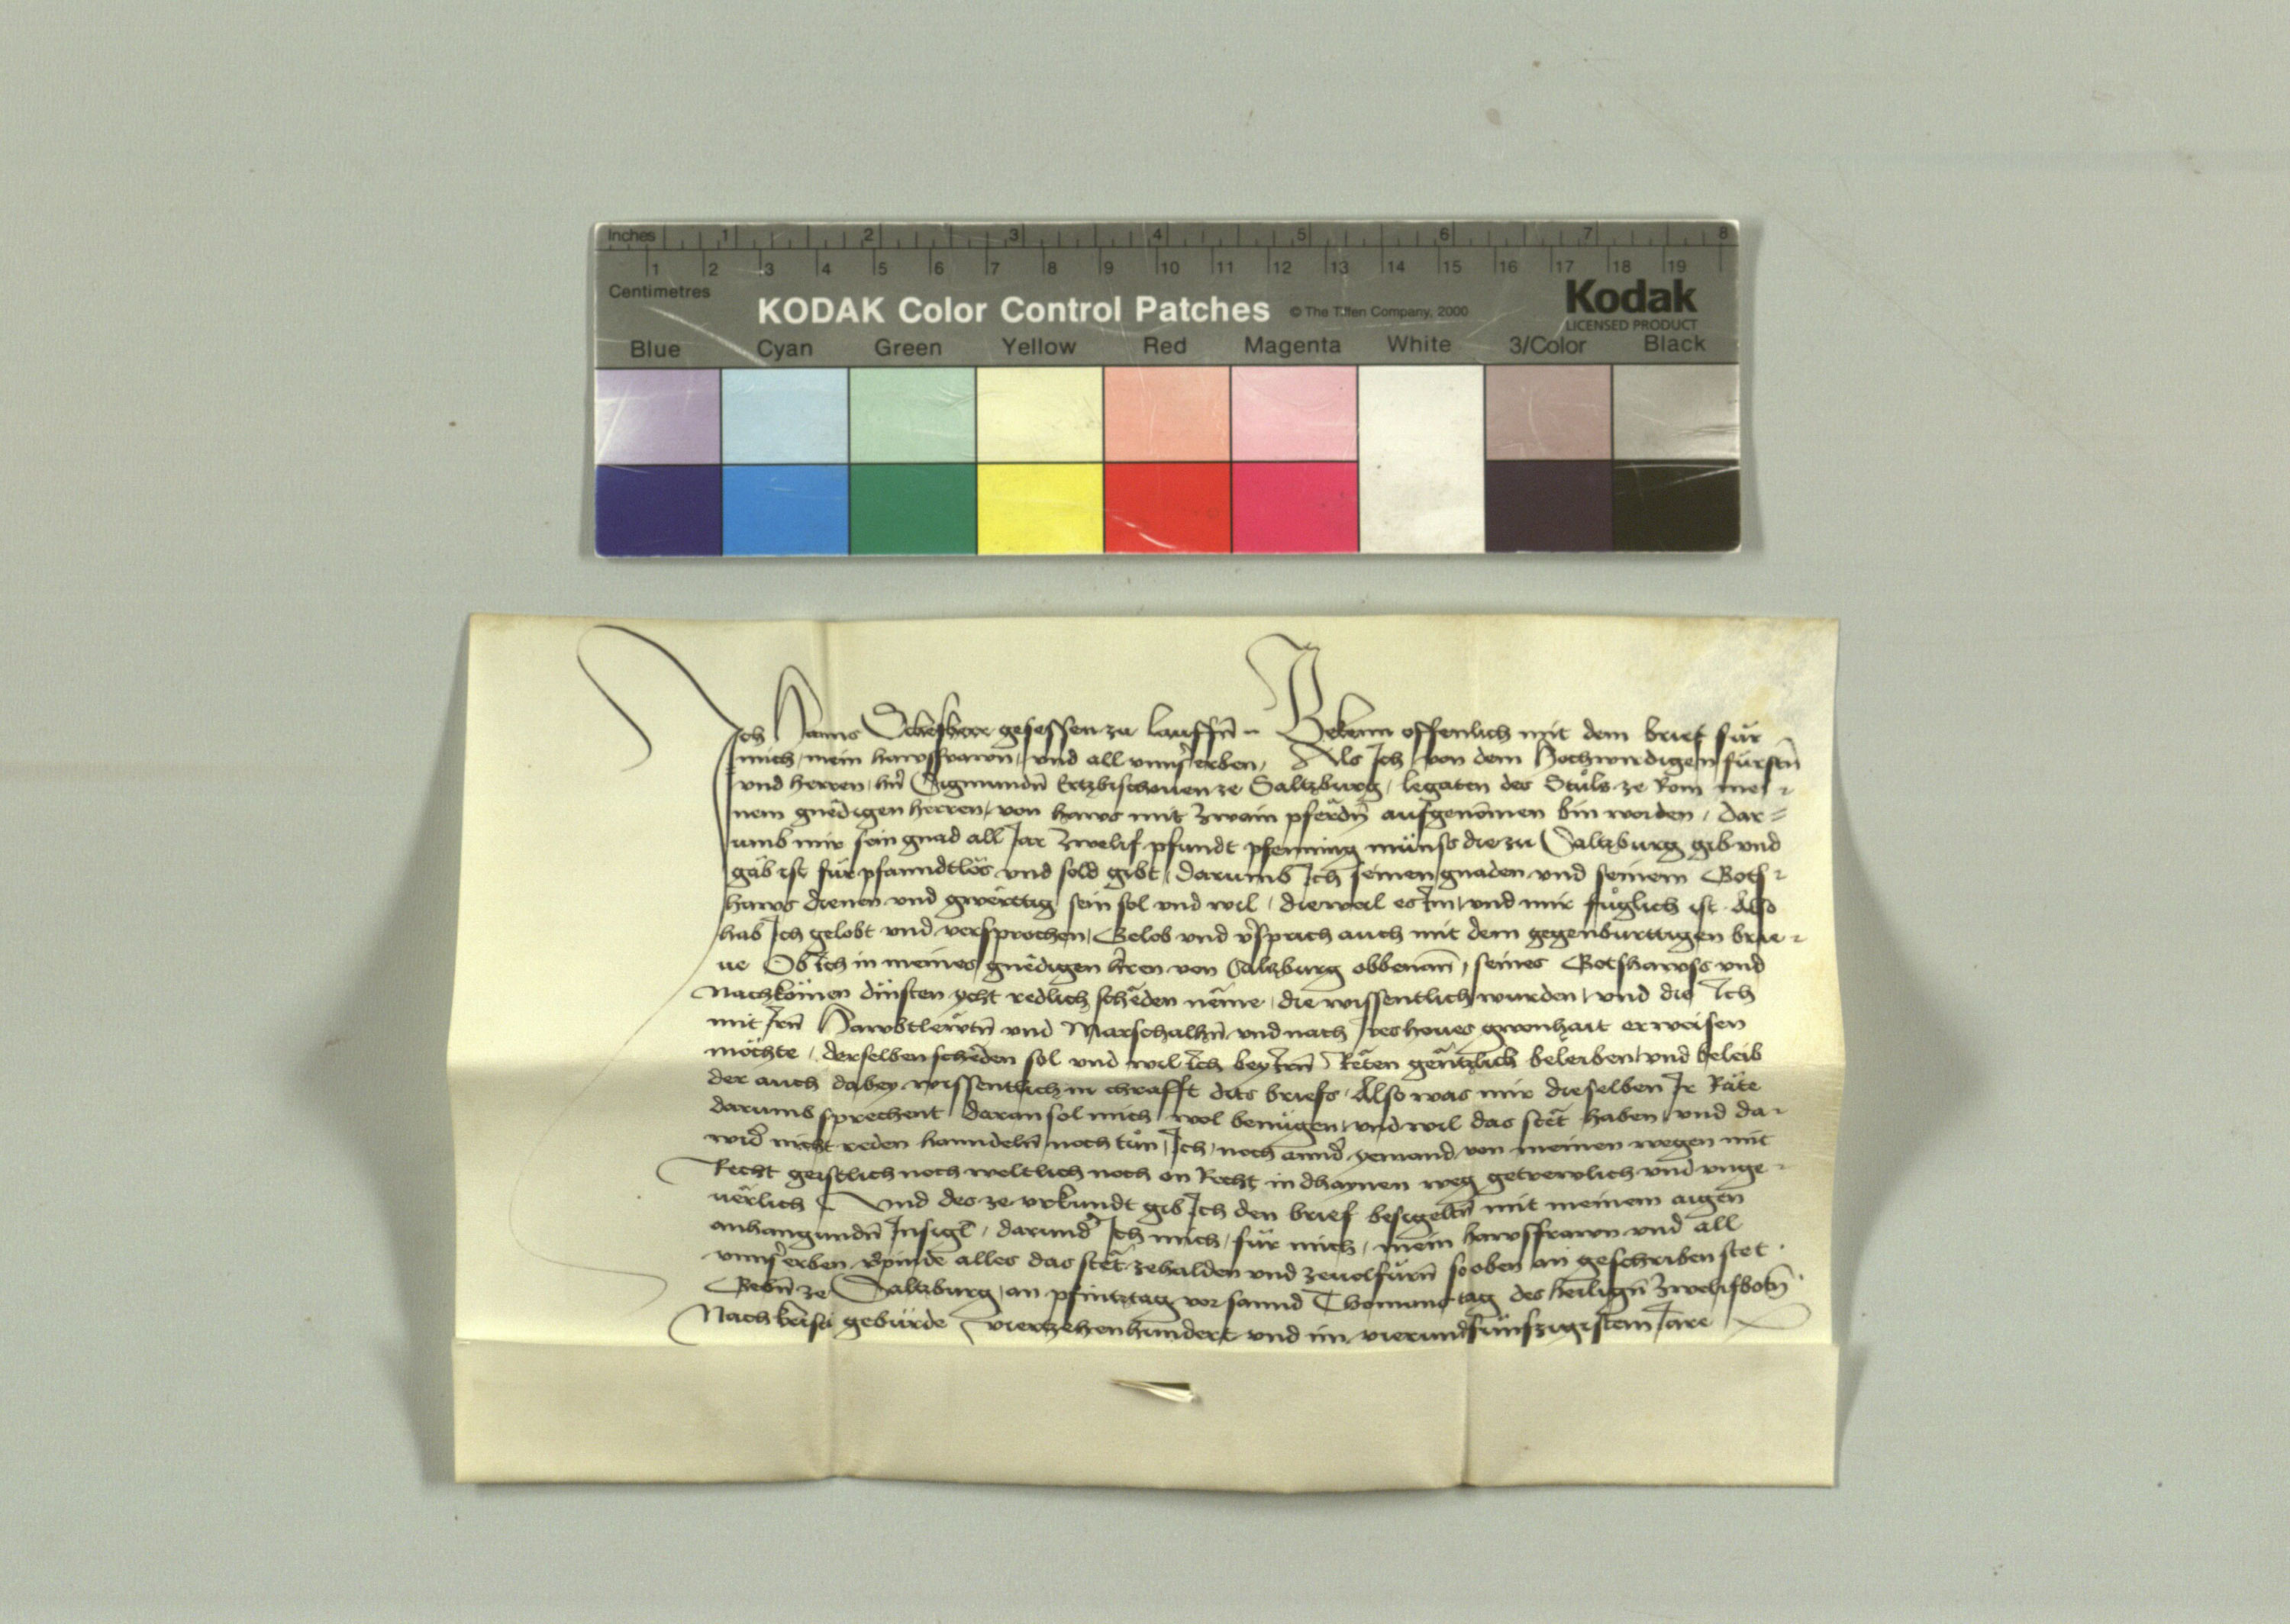 Inches 1 2 3 4 5 6 7 8
1 2 3 4 5 6 7 8 9 10 11 12 13 14 15 16 17 18 19
Centimetres
KODAK Color Control Patches © The Tiffen Company, 2000 Kodak
LICENSED PRODUCT
Blue Cyan Green Yellow Red Magenta White 3/Color Black
Ich Hanns gesessen zu Lauffn̄ Bekenn offenlich mit dem brief für
mich, mein hawsfrawn, vnd all vnnser erben, Als Ich von dem Hochwirdigen fürstn̄
vnd herren, hn̄ Sigmundn̄ Ertzbischouen ze Saltzburg, legaten des Stůls ze Rom mei-
nem gnêdigen herren, von haws mit zwain pfêrdn̄ aufgenomen bin worden, dar=
umb mir sein gnad all Jar zwelif pfundt pfenning münss die zu Saltzburg gib vnd
gäb ist für pfanndtlös vnd sold gibt, darumb Ich seinen gnaden vnd seinem Gots-
haws dienen vnd gwêrttig sein sol vnd wil, dieweil es Im vnd mir füglich ist. Also
hab Ich gelobt vnd versprochen, Gelob vnd v̄sprich auch mit dem gegenburttigen brie-
ue Ob Ich in meines gnêdigen h̄ren von Saltzburg obbenan̄, seines Gotshawss vnd
Nachkomen dinsten ycht redlich schêden nême, die wissentlich wurden, vnd die Ich
mit Irn̄ Hawbtlewtn̄ vnd Marschalhn̄ vnd nach Ires houes gwonhait erweisen
möchte, derselben schêden sol vnd wil Ich bey Irn̄ Rêten gêntzlich beleiben, vnd beleib
der auch dabey wissentlich in chrafft dits briefs. Also was mir dieselben Ir Räte
darumb sprechent daran sol mich wol benügen, vnd wil das stêt haben, vnd da-
wid̄ nicht reden hanndeln̄ noch tůn, Ich, noch annd̄ yemand von meinen wegen mit
Recht geistlich noch weltlich noch on Recht in dhaynen weg getrewlich vnd vnge-
uêrlich Vnd des ze vrkundt gib Ich den brief besigeltn̄ mit meinem aigen
anhangundn̄ Insigl̄, darund̄ Ich mich, für mich, mein hawsfrawn vnd all
vnns̄ erben v̄pinde alles das stêt zehalden vnd zeuolfürn̄ so oben an geschriben stet.
Gebn̄ ze Saltzburg, an pfintztag vor sannd Thomans tag des heilign̄ zwelifbotn̄
Nach kristi gebürde vierzehenhundert vnd im vierundfünfzigistem Jare